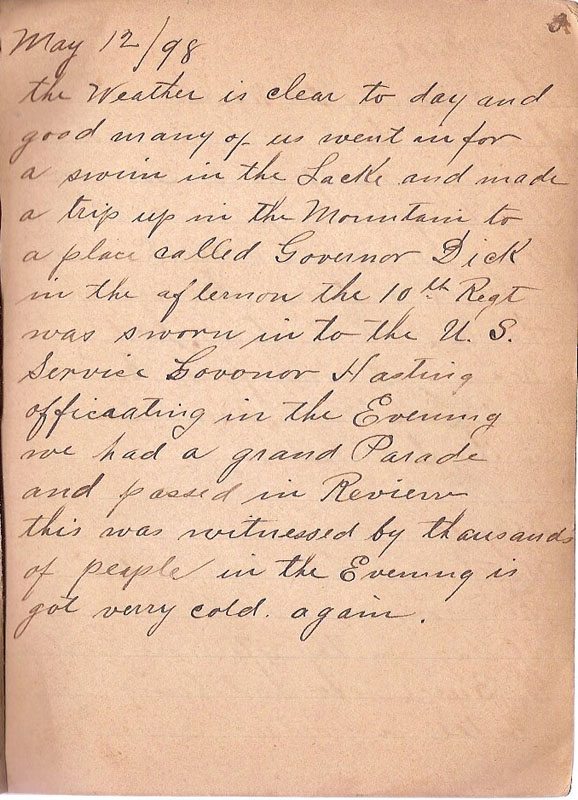 May 12/98
the Weather is clear to day and
good many of us went in for
a swim in the Lacke and made
a trip up in the Mountain to
a place called Governor Dick
in the afternon the 10th Regt
was sworn in to the U. S.
Service Govonor Hasting
officaating in the Evening
we had a grand Parade
and passed in Review
this was witnessed by thousands
of people in the Evening is
got verry cold. again.